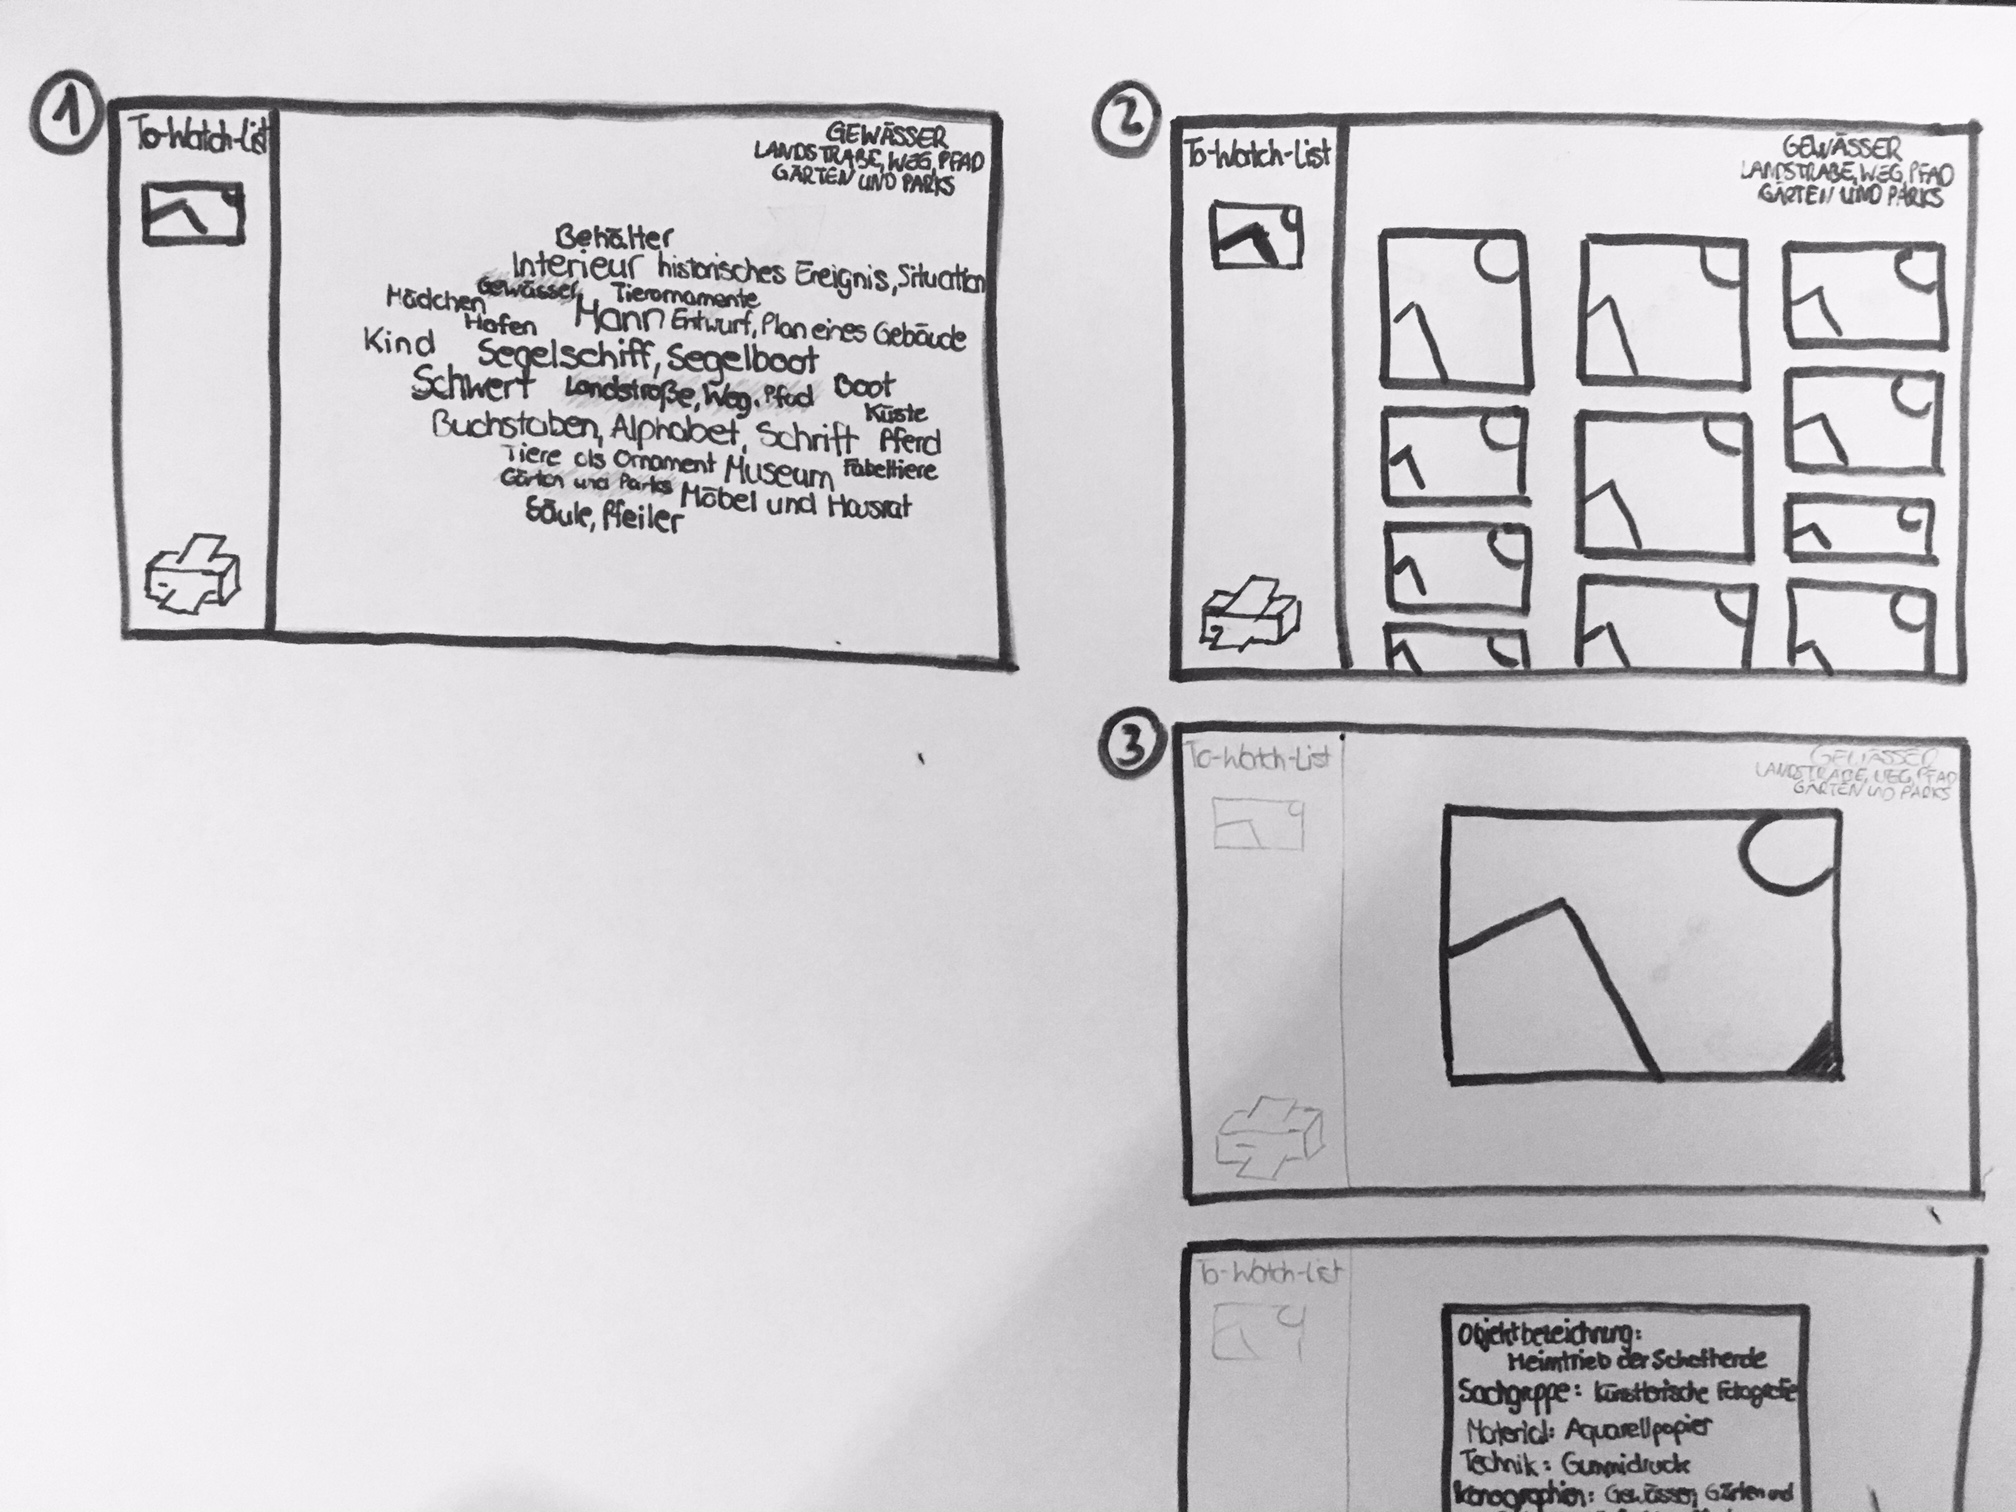 1
To-Watch-List
GEWÄSSER
LANDSTRAßE, WEG, PFAD
GÄRTEN UND PARKS
Behälter
Interieur historisches Ereignis, Situation
Mädchen Gewässer Tierornamente
Hafen Mann Entwurf, Plan eines Gebäude
Kind Segelschiff, Segelboot
Schwert Landstraße, Weg, Pfad Boot
Küste
Buchstaben, Alphabet, Schrift Pferd
Tiere als Ornament Museum Fabeltiere
Gärten und Parks Möbel und Hausrat
Säule, Pfeiler
2
To-Watch-List
GEWÄSSER
LANDSTRAßE, WEG, PFAD
GÄRTEN UND PARKS
3
To-Watch-List
GEWÄSSER
LANDSTRAßE, WEG, PFAD
GÄRTEN UND PARKS
To-Watch-List
Objektbezeichnung:
Heimtrieb der Schafherde
Sachgruppe: Künstlerische Fotografie
Material: Aquarellpapier
Technik: Gummidruck
Ikonographien: Gewässer, Gärten und